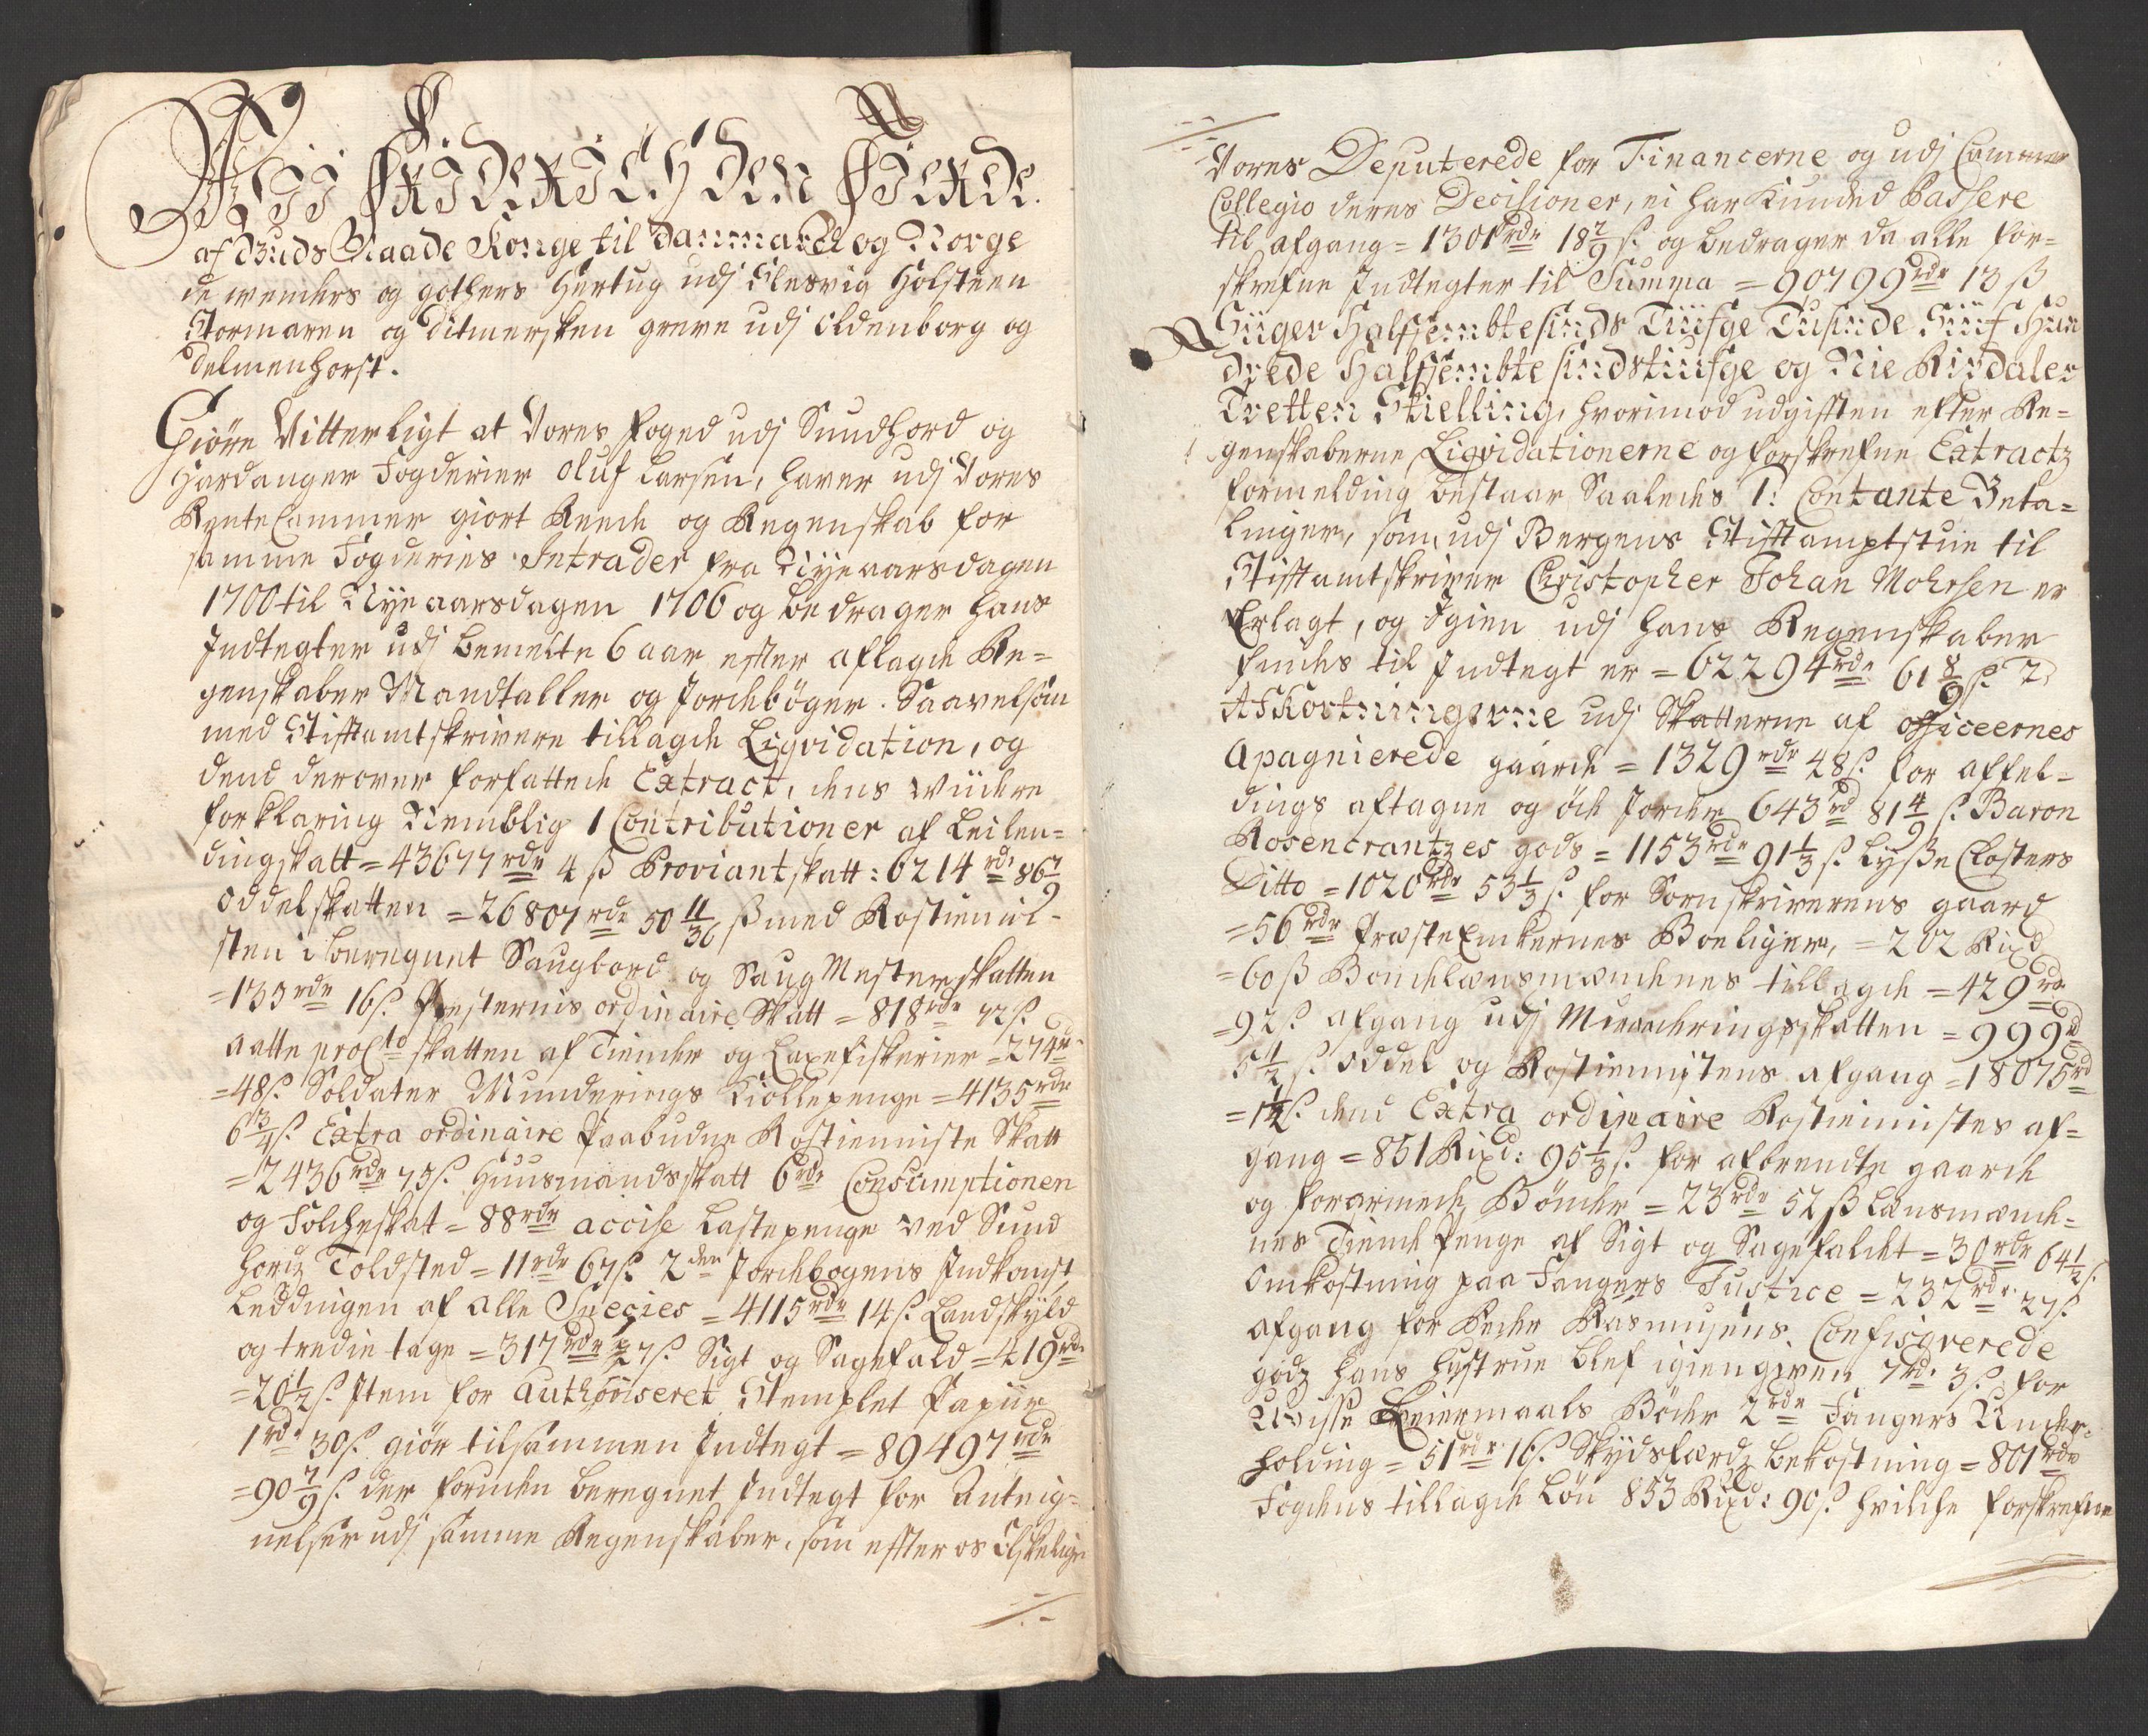 Wii Friderich Den Fierde.
af Guds Naade Konge til Danmarck og Norge
de wenders og gothers Hertug udj Slesvig Holsteen
Stormaren og Ditmersken greve udj Oldenborg og
delmenhorst.
Giöre Vitterligt at Vores foged udj Sundhord og
Hardanger Fogderier Oluf Larsen, haver udj Vores
RenteCammer giort Reede og Regenskab for
samme Fogderies Intrader fra Nyeaarsdagen
1700 til Nyeaarsdagen 1706 og bedrager hans
Indtegter udj bemelte 6 aar efter aflagde Re=
genskaber Mandtaller og Jordebøger. Saavelsom
med Stiftamtskrivere tillagde Liqvidation, og
dend derover forfattede Extract, dens widere
forklaring Nemblig 1 Contributioner af Leilen=
dingskatt = 43677 rdr 4 ß Proviantskatt: 6214 rdr 86 7/9
Oddelskatten = 26807 rdr 50 11/36 ß med Rostieniil-
sten iberegnet Saugbord og Saug Mesterskatten
=133 rdr 16 ß. Presternis ordinaire Skatt = 818 rdr 72 ß.
aatte proCto skatten af Tiender og Laxefiskerier = 274 rdr
=48 ß. Soldater Munderings Kiollepenge = 4135 rdr
6 13/4 ß. Extra ordinaire Paabudne Rostienniste Skatt
=2436 rdr 73 ß. Huusmandsskatt 6 rdr Consumptionen
og Folcheskat = 88 rdr accise Lastepenge ved Sund
hordz Toldsted = 11 rdr 67 ß. 2den Jordebogens Indkomst
Leddingen af alle Species = 4115 rdr 14 ß. Landskyld
og tredie tage = 317 rdr 27 ß. Sigt og Sagefald = 419 rdr
=20 1/2 ß. Item for Authoriseret Stemplet Papiir
1 rdr 30 ß. giör tilsammen Indtegt = 89497 rdr
=90 7/9 ß. der foruden beregnet Indtegt for Anteig=
nelser udj samme Regenskaber, som effter os Elskelige
Vores Deputerede for Financerne og udj Cammer
Collegio deres Decisioner, ei har kunded Passere
til afgang = 1301 rdr 18 2/9 ß. og bedrager da alle for=
skrefne Indtegter til Summa = 90799 rdr 13 ß
Siiger Halffembtesinds Tiufge Tusinde Siuf Hun
drede Halffembtesindstiufge og Nie Rixdaler
Tretten Skielling, hvorimod udgifften efter Re=
genskaberne, Liqvidationerne og forskrefne Extractz
formelding bestaar Saaledes 1: Contante Beta=
linger, som udj Bergens Stifftamptstue til
Stifftamtskriver Christopher Johan Mohrsen er
Erlagt, og Igien udj hans Regenskaber
findes til Indtegt er = 62294 rdr 61 8/9 ß. 2
Afkortningerne udj Skatterne af officeernes
Apagnierede gaarde = 1329 rdr 48 ß. for affel=
dings aftagne og öde Jorder 643 rd 81 4/9 ß. Baron
Rosencrantzes gods = 1153 rdr 91 1/3 ß. Lyße Closters
Ditto = 1020 rdr 53 1/3 ß. for Sorenskriverens gaard
=56 rdr PresteEnkernes Boeliger, = 202 Rixd
=60 ß Bondelænsmændenes tillagde = 429 rdr
=92 ß. afgang udj Munderingsskatten = 999 rd
5 1/2 ß. Oddel og Rostiennistens afgang = 18075 rd
=1 1/2 ß. dend Extra ordinaire Rostiennistes af=
gang = 851 Rixd: 95 1/3 ß. for afbrendte gaarde
og forarmede Bönder = 23 rdr 52 ß Lænsmænde=
nes Tiende Penge af Sigt og Sagefaldet = 30 rdr 64 1/2 ß.
Omkostning paa Fangers Justice = 232 rdr 27 ß
afgang for Peder Rasmusens Confisqverede
godz hans Hustrue blef igiengiven 7 rd. 3 ß for
Uvisse Leiermaals Böder 2 rdr Fangers Under=
holding = 51 rdr 16 ß Skydsfærdz bekostning = 801 rdr
Fogdens tillagde Lön 853 Rixd: 90 ß. hvilche forskrefne